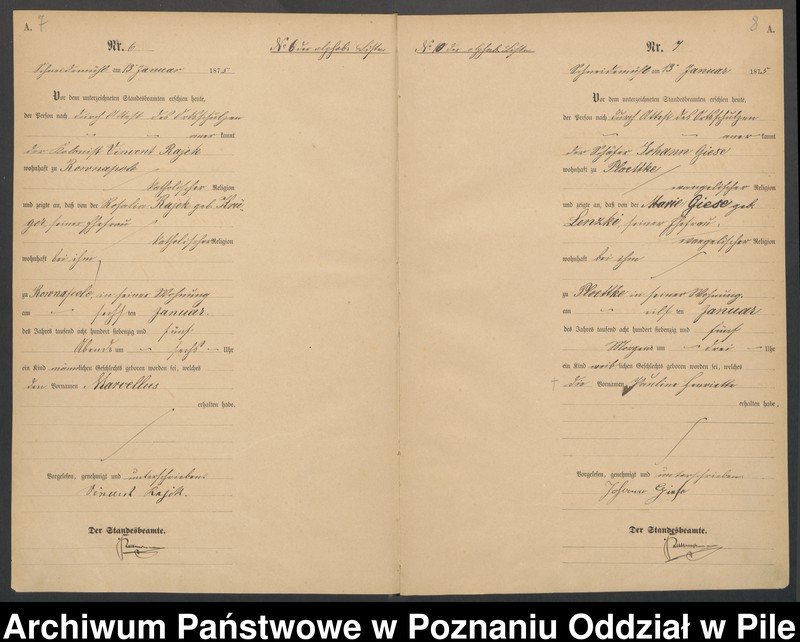 A. 7
Nr. 6
Nº 6 der alphab. Liste
Schneidemühl am 13 Januar 1875
Vor dem unterzeichneten Standesbeamten erschien heute,
der Person nach durch Attest des Ortsschulzen
aner kannt
der Kolonist Vincent Rajek
wohnhaft zu Rownapole
katholischer Religion
und zeigte an, daß von der Rosalia Rajek geb. Krü-
ger, seiner Ehefrau
katholischer Religion
wohnhaft bei ihm
zu Rownapole, in seiner Wohnung
am sechs ten Januar
des Jahres tausend acht hundert siebenzig und fünf
Abends um sechs Uhr
ein Kind männlichen Geschlechts geboren worden sei, welches
den Vornamen Marcellus
erhalten habe.
Vorgelesen, genehmigt und unterschrieben
Vincent Rajek.
Der Standesbeamte.
8 A.
Nº 10 der alphab. Liste
Nr. 7
Schneidemühl am 13 Januar 1875
Vor dem unterzeichneten Standesbeamten erschien heute,
der Person nach durch Attest des Ortsschulzen
aner kannt
der Schäfer Johann Giese
wohnhaft zu Ploettke
evangelischer Religion
und zeigte an, daß von der Marie Giese geb
Lenzki, seiner Ehefrau.
evangelischer Religion
wohnhaft bei ihm
zu Ploettke in seiner Wohnung
am eilf ten Januar
des Jahres tausend acht hundert siebenzig und fünf
Morgens um drei Uhr
ein Kind weiblichen Geschlechts geboren worden sei, welches
† die Vornamen Pauline Henriette
erhalten habe.
Vorgelesen, genehmigt und unterschrieben
Johann Giese
Der Standesbeamte.
Archiwum Państwowe w Poznaniu Oddział w Pile